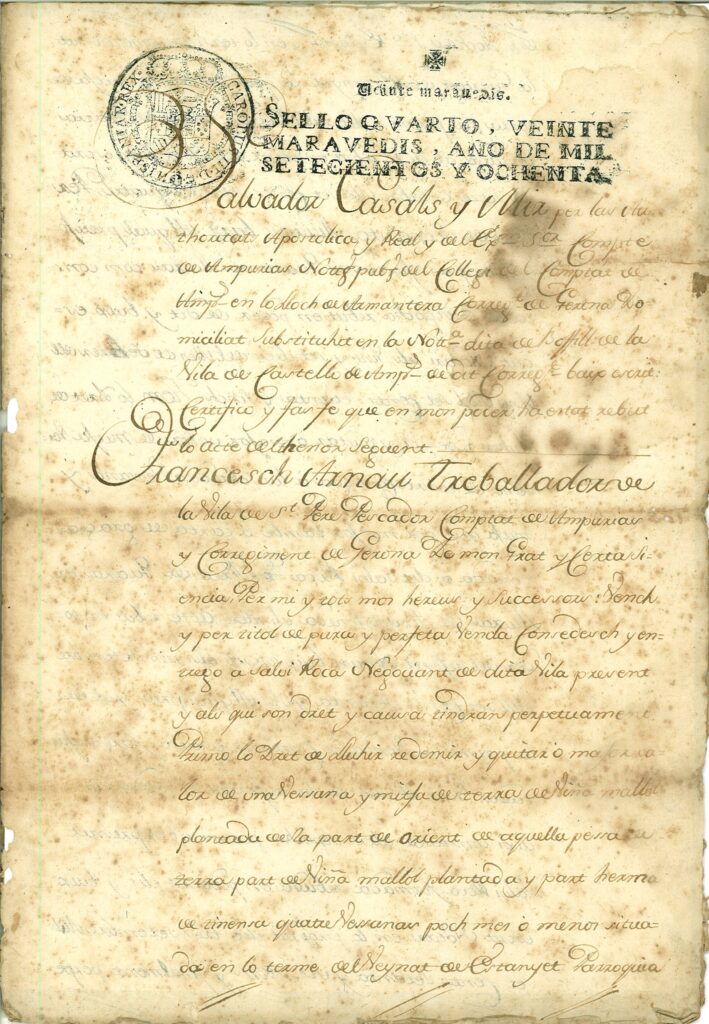 CAROLUS III D G HISPANIAR REX
Veinte maravedis.
SELLO QVARTO, VEINTE
MARAVEDIS, AÑO DE MIL
SETECIENTOS Y OCHENTA.
Salvador Casáls y Mir per las Au-
thoritat Apostolica, y Real y del Exm Sor Compte
de Ampurias Notí pubh del Collegi del Comptat de
Ampˢ en lo lloch de Armantera Corregᵗ de Gerona Do-
miciliat Substituhit en la Notª dita de Hoffill de la
Vila de Castelló de Ampˢ de dit Corregᵗ baix escrit:
Certifico y fas fe que en mon poder ha estat rebut
lo acte del thenor seguent.
Francesch Arnau Treballador de
la Vila de St. Pere Pescador Comptat de Ampurias
y Corregiment de Gerona De mon Grat y Certa Si-
encia, Per mi y tots mos hereus y Successors: Vench
y per titol de pura y perfeta Venda Consedesch y en-
trego a Salvi Roca Negociant de dita Vila present
y als qui son dret y causa tindrán perpetuament
Primo lo Dret de lluhir redemir y quitar ó major va-
lor de una Vessana y mitja de terra de Viña mallol
plantada de la part de Orient de aquella pessa de
terra part de Viña mallol plantada y part herma
de tinensa quatre Vessanas poch mes ó menos situa-
da en lo terme del Veynat de Estanyet Parroquia